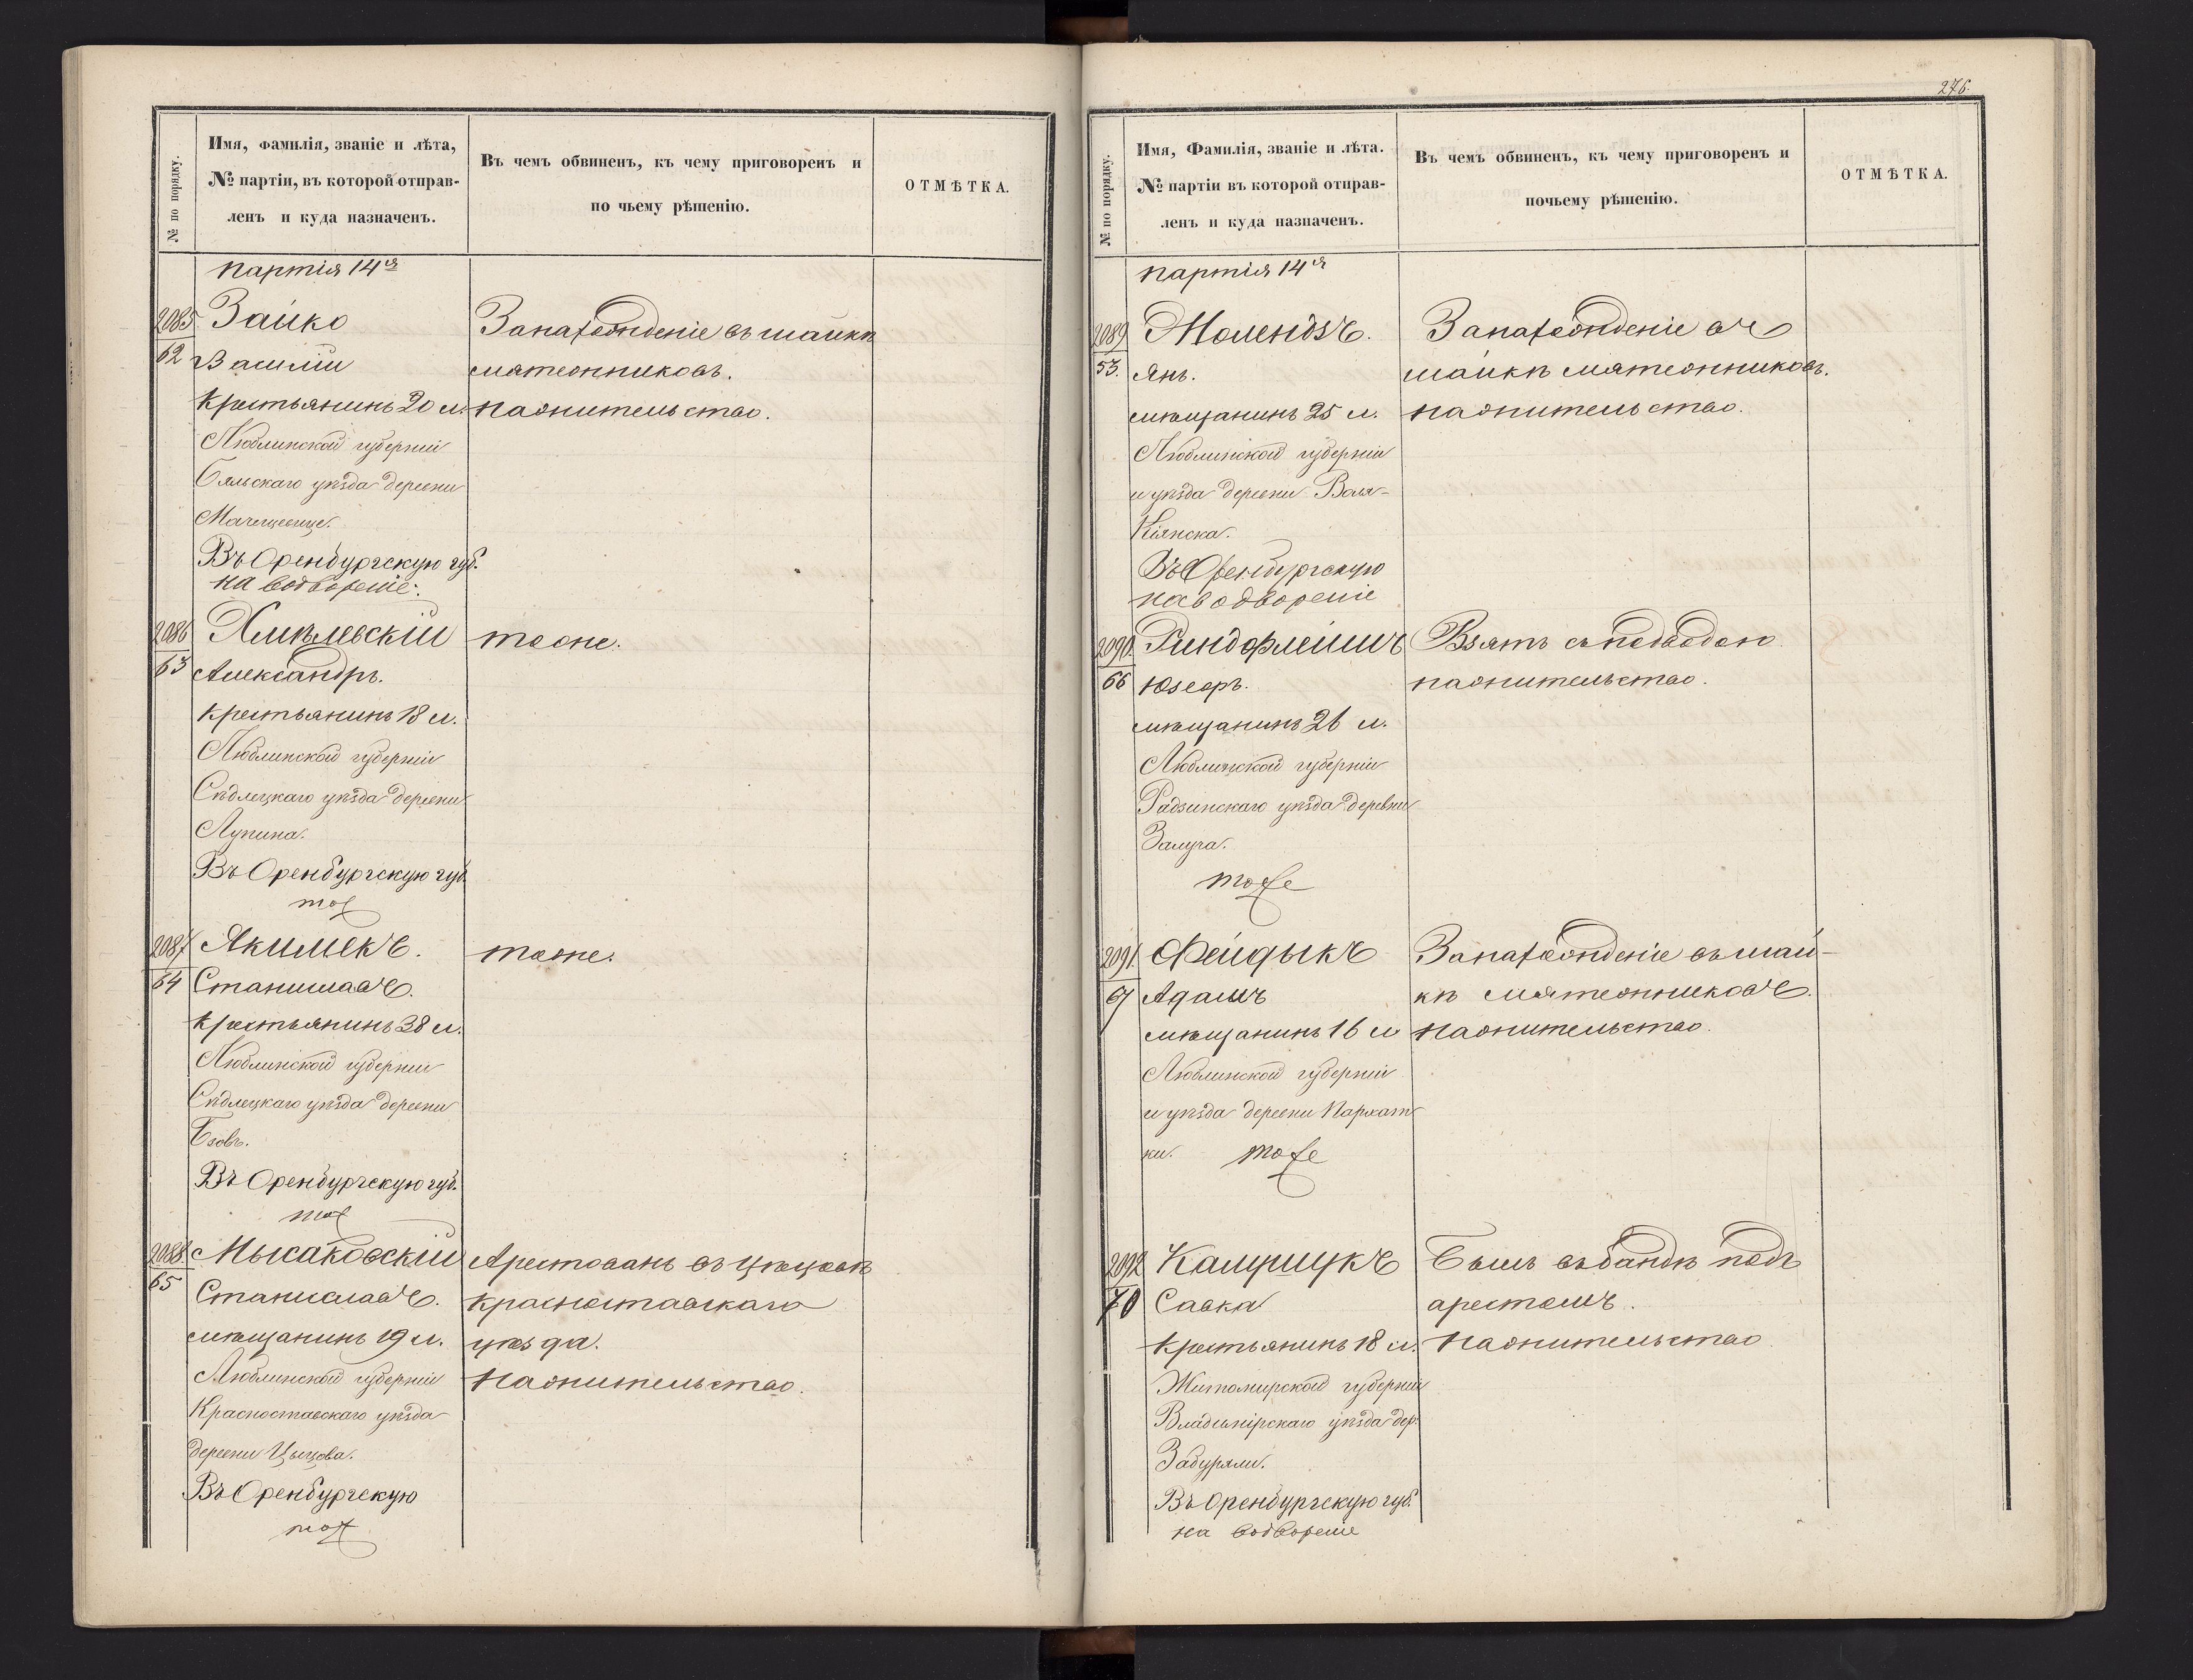 276.
№ по порядку.
Имя, Фамилія, званіе и лѣта,
№ партіи, въ которой отправ-
ленъ и куда назначенъ.
Въ чемъ обвиненъ, къ чему приговоренъ и
по чьему рѣшенію.
ОТМѢТКА.
партія 14я
2085
62
Зайко
Василій
крестьянинъ 20 л.
Люблинской губерніи
Бяльскаго уѣзда деревни
Въ Оренбургскую губ.
на водвореніе.
За нахожденіе въ шайкѣ
мятежниковъ.
на жительство.
2086
63
Хмѣлевскій
Александръ.
крестьянинъ 18 л.
Люблинской губерніи
Сѣдлецкаго уѣзда деревни
Лупина.
Въ Оренбургскую губ.
тож
тоже.
2087
64
Якимекъ.
Станиславъ.
крестьянинъ 38 л.
Люблинской губерніи
Сѣдлецкаго уѣзда деревни
Въ Оренбургскую губ.
тож
тоже.
2088.
65
Мысаковскій
Станиславъ.
мѣщанинъ 19 л.
Люблинской губерніи
Красноставскаго уѣзда
деревни Цыцова.
Въ Оренбургскую
тож
Арестованъ въ Цыцовѣ
Красноставскаго
уѣзда.
на жительство.
№ по порядку.
Имя, Фамилія, званіе и лѣта.
№ партіи въ которой отправ-
ленъ и куда назначенъ.
Въ чемъ обвиненъ, къ чему приговоренъ и
почьему рѣшенію.
ОТМѢТКА.
партія 14я
2089
53.
Молендзъ.
Янъ.
мѣщанинъ 25 л.
Люблинской губерніи
и уѣзда деревни Воля-
Кіянска.
Въ Оренбургскую
на водвореніе
За нахожденіе въ
шайкѣ мятежниковъ.
на жительство.
2090.
66
Риндфлейшъ
Юзефъ.
мѣщанинъ 26 л.
Люблинской губерніи
Радзинскаго уѣзда деревни
Залуга.
тоже
Взятъ съ подводою
на жительство.
2091.
67
Фейдыкъ
Адамъ
мѣщанинъ 16 л
Люблинской губерніи
и уѣзда деревни Пархат
ки. тоже
За нахожденіе въ шай-
кѣ мятежниковъ.
на жительство.
2092
70
Савка
крестьянинъ 18 л.
Житомирской губерніи
Владимірскаго уѣзда дер.
Въ Оренбургскую губ.
на водвореніе
Былъ въ бандѣ подъ
арестомъ.
на жительство